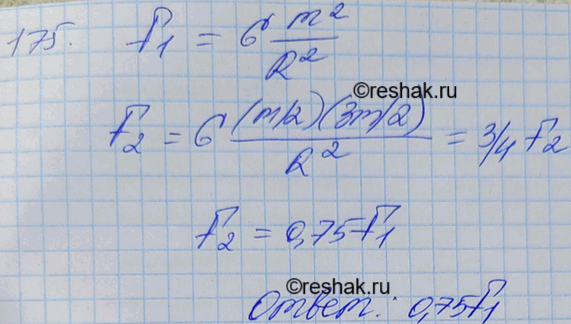 175. F₁ = G m²/R²
©reshak.ru
F₂ = G (m/2)(3m/2)/R² = 3/4 F₂
F₂ = 0,75F₁
©reshak.ru
Ответ: 0,75F₁